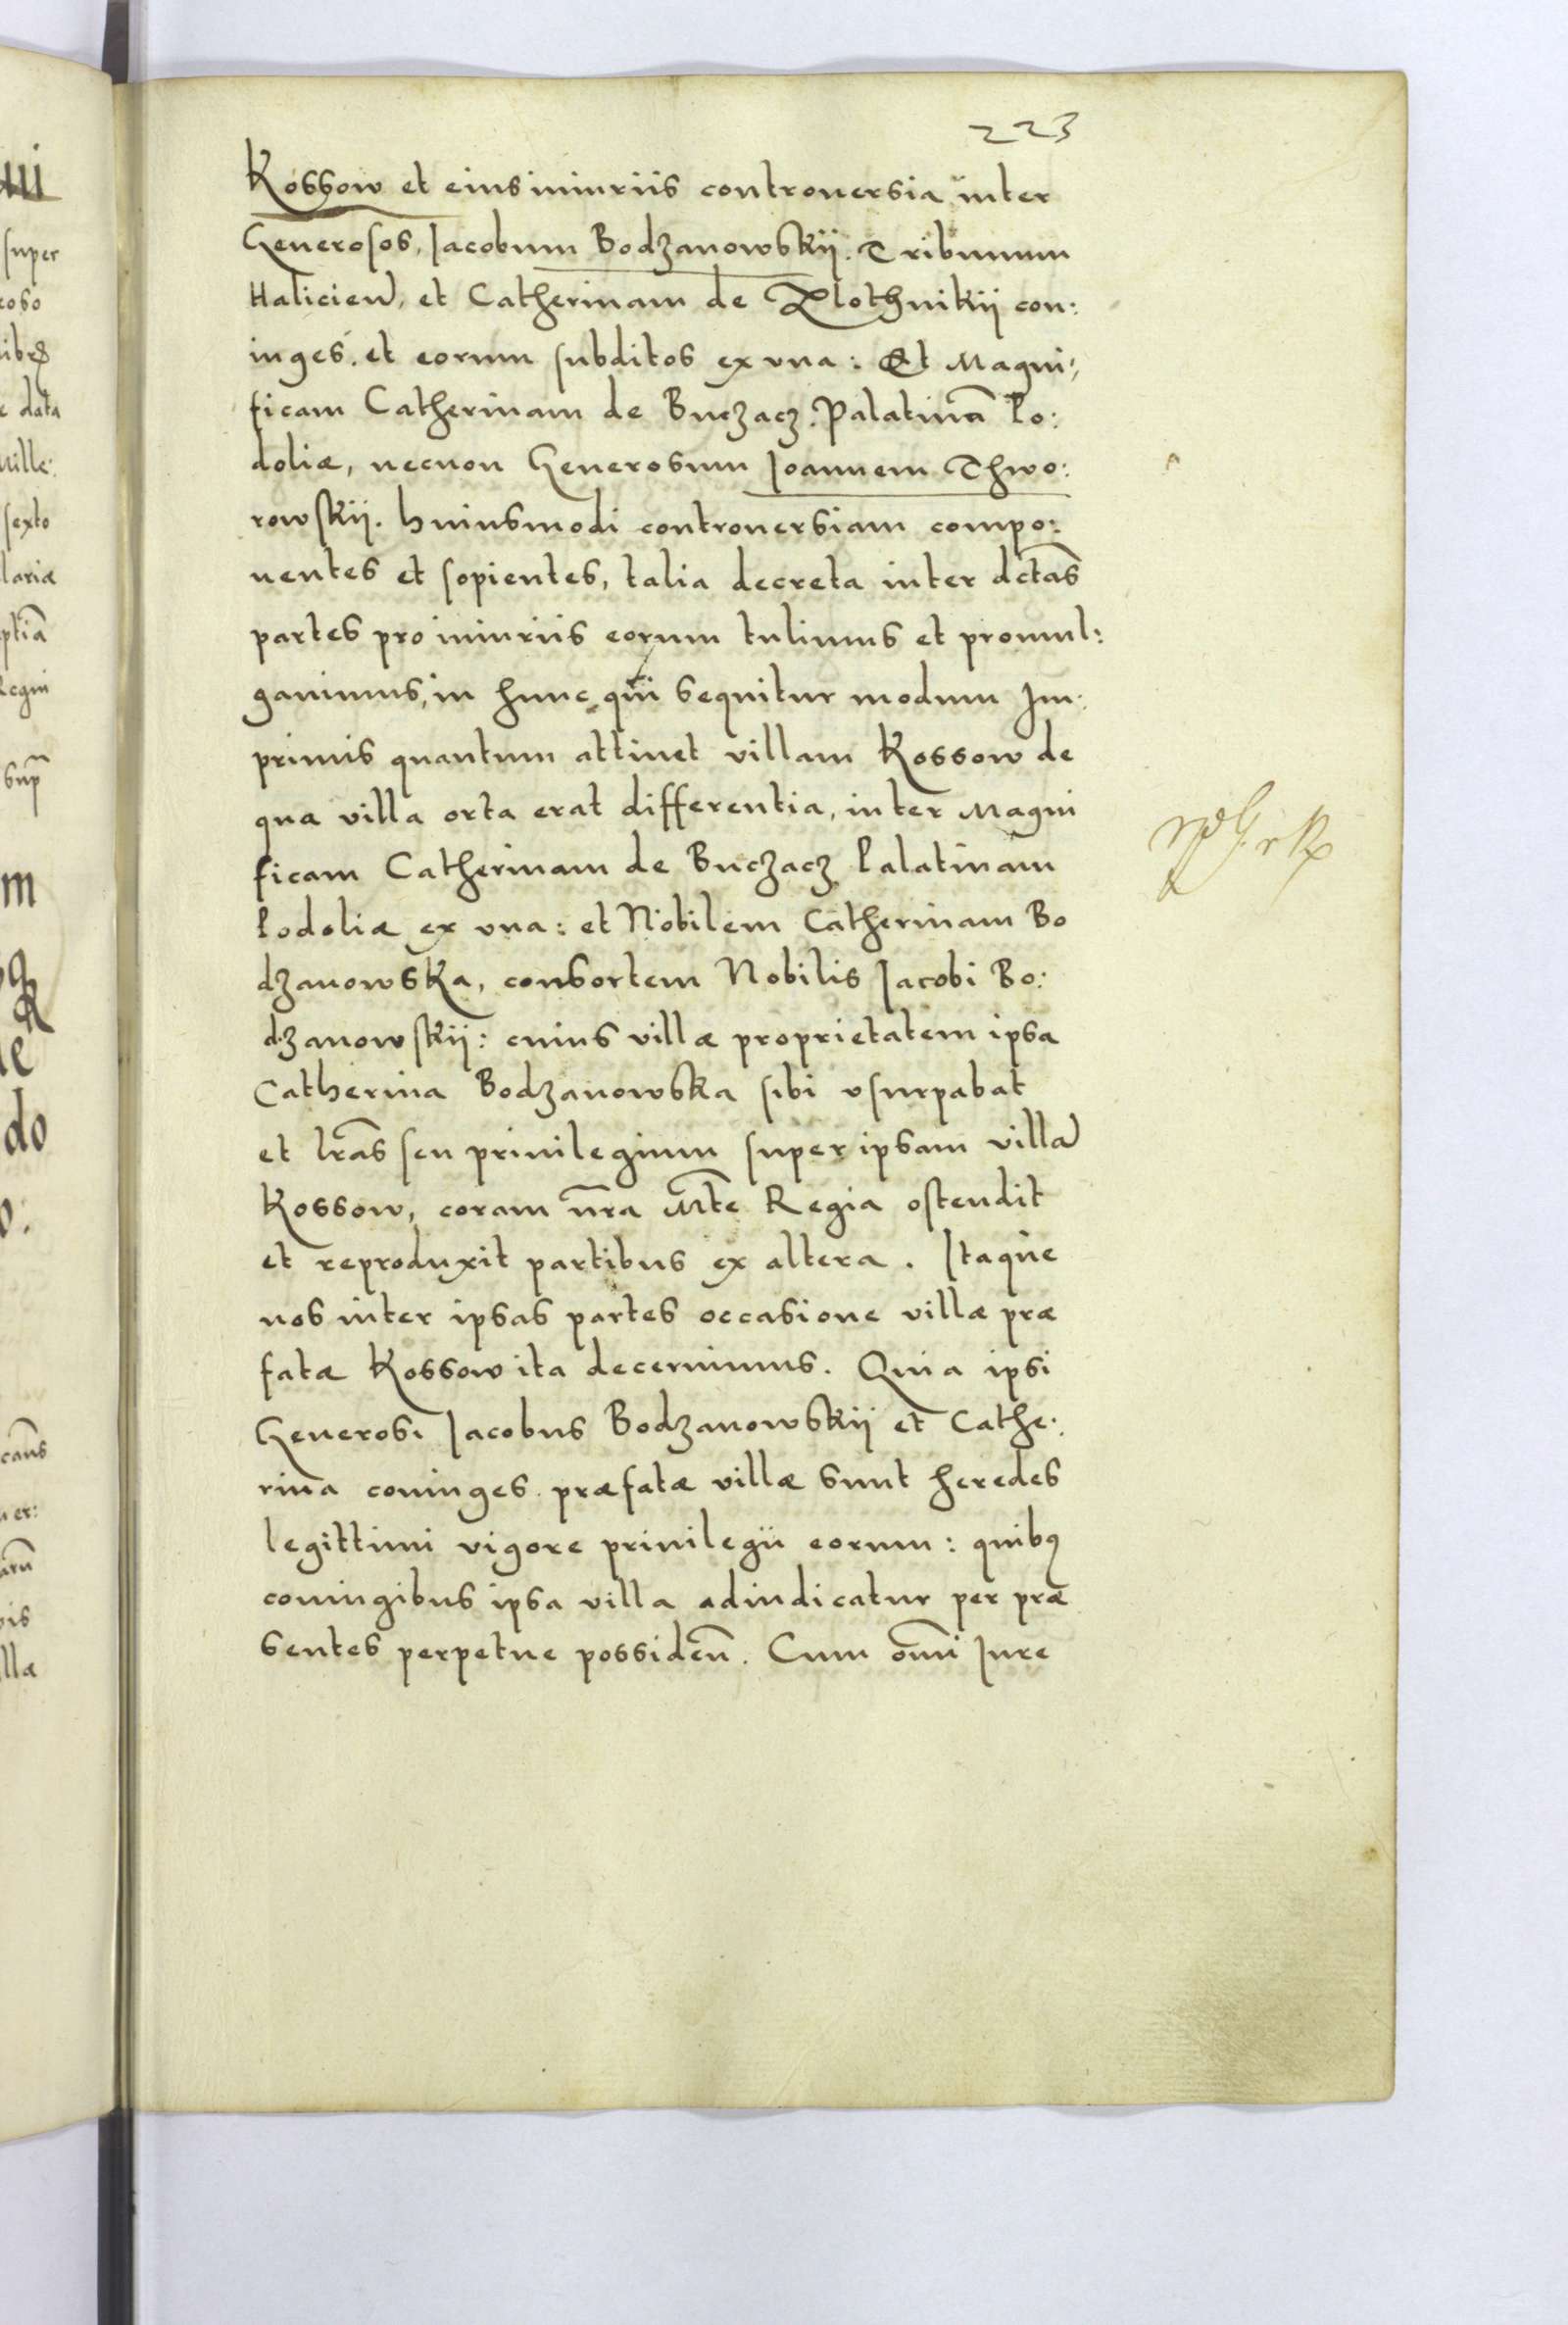 223
Kossow et eius iniuriis controuersia inter
Generosos, Iacobum Bodzanowskij. Tribunum
Halicien̄, et Catherinam de Zlothnikij con:
iuges. et eorum subditos ex vna: Et Magni,
ficam Catherinam de Buczacz. Palatinā Po:
doliæ, necnon Generosum Ioannem Thwo:
rowskij. huiusmodi controuersiam compo:
nentes et sopientes, talia decreta inter dctās
partes pro iniuriis eorum tulimus et promul:
gauimus, in hunc qui sequitur modum Im:
primis quantum attinet villam Kossow de
qua villa orta erat differentia, inter Magni
ficam Catherinam de Buczacz Palatinam
Podoliæ ex vna: et Nobilem Catherinam Bo
dzanowska, consortem Nobilis Iacobi Bo:
dzanowskij: cuius villæ proprietatem ipsa
Catherina Bodzanowska sibi vsurpabat
et lrās seu priuilegium super ipsam villā
Kossow, coram nr̄a Mte̅ Regia ostendit
et reproduxit partibus ex altera. Itaque
nos inter ipsas partes occasione villæ præ
fatæ Kossow ita decernimus. Quia ipsi
Generosi Iacobus Bodzanowskij et Cathe:
rina coniuges præfatæ villæ sunt heredes
legittimi vigore priuilegii eorum: quibꝯ
coniugibus ipsa villa adiudicatur per præ
sentes perpetue possiden̄. Cum om̄i Iure